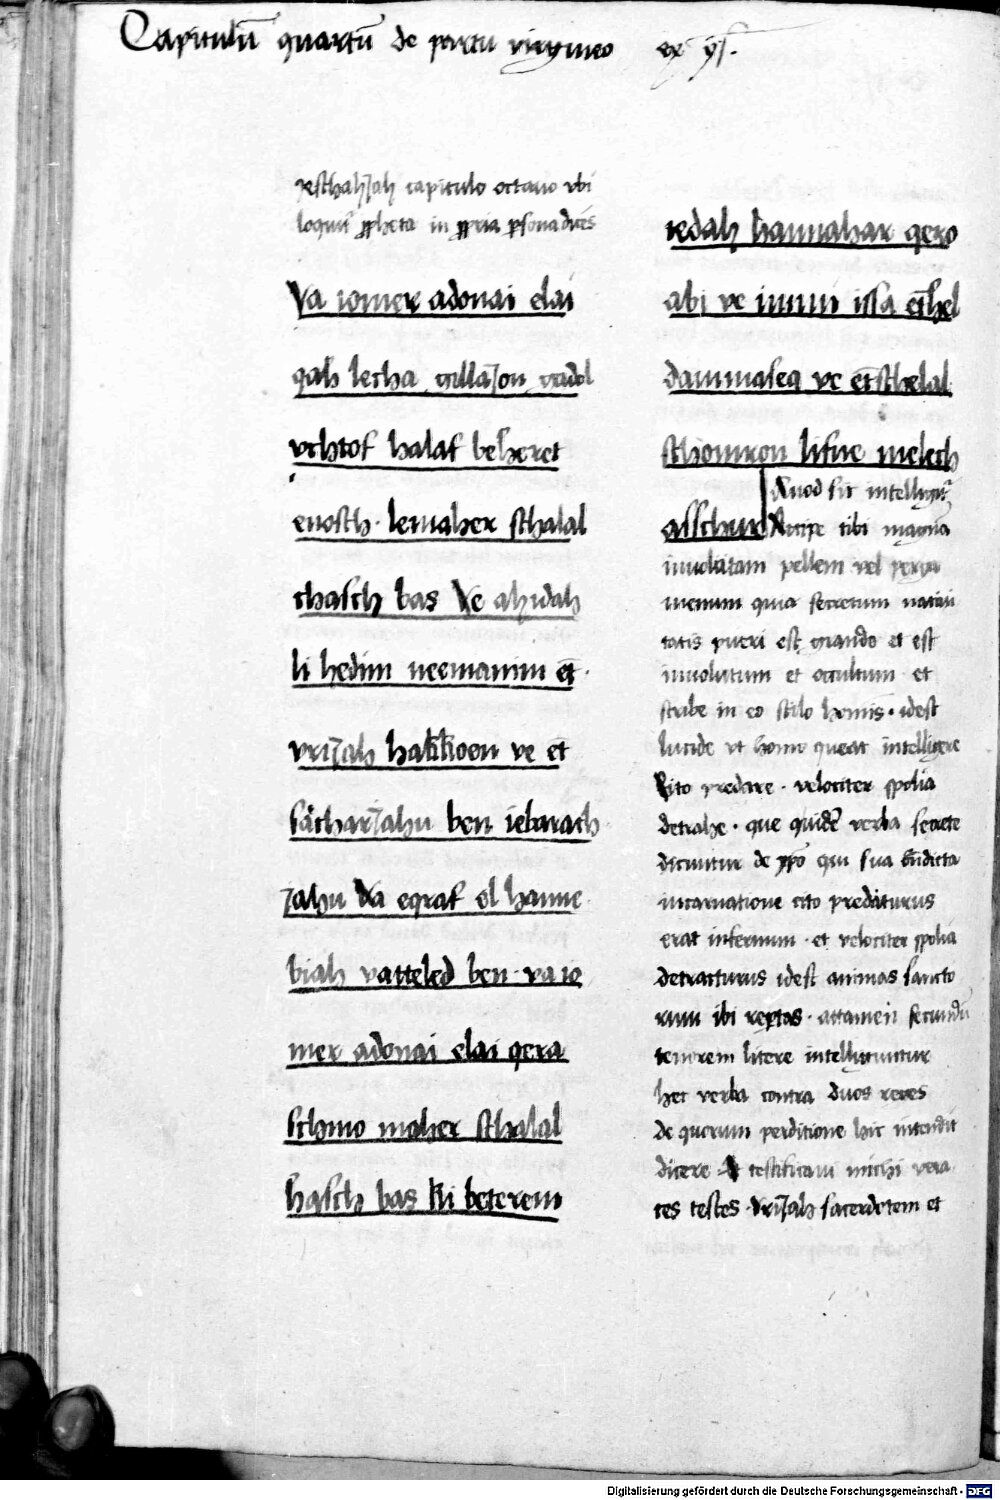 Capitulū quartū de partu virgineo ex ys.
JesthahJah capitulo octavo vbi
loquit᷑ ꝓpheta in ꝓpria ꝑsona dicēs
Va iomer adonai elai
qah lecha gillaJon gadol
vchtof halaf beheret
enosth · lemaher sthalal
chasch bas Ve ahidah
li hedim neemanim et ·
vriJah hakkohen ve et
sacharJahu ben iebarach
Jahu Va eqraf el hanne
biah vatteled ben · va io
mer adonai elai qera
schmo maher sthalal
hasch bas ki beterem
iedah hannahar qero
abi ve immi issa et hel
dammaseq ve et sthelal
sthomron lifne melech
asschur Quod sic intelligit᷑
Accipe tibi magnā
inuolutam pellem vel perga
menum quia secretum natiui
tatis pueri est grande et est
inuolutum et occultum et
scribe in eo stilo hominis · idest
lucide vt homo queat intelligere
Cito predare · velociter spolia
detrahe · que quidē verba secrete
dicuntur de xp̄o qui sua bn̄dicta
incarnatione cito predaturus
erat infernum · et velociter spolia
detracturus idest animas sancto
rum ibi reptas · attamen secundū
tenorem litere intelliguntur
hec verba contra duos reges
de quorum perditione hic intendit
dicere Et testificaui michi vera
ces testes · VriJah sacerdotem et
Digitalisierung gefördert durch die Deutsche Forschungsgemeinschaft - DFG